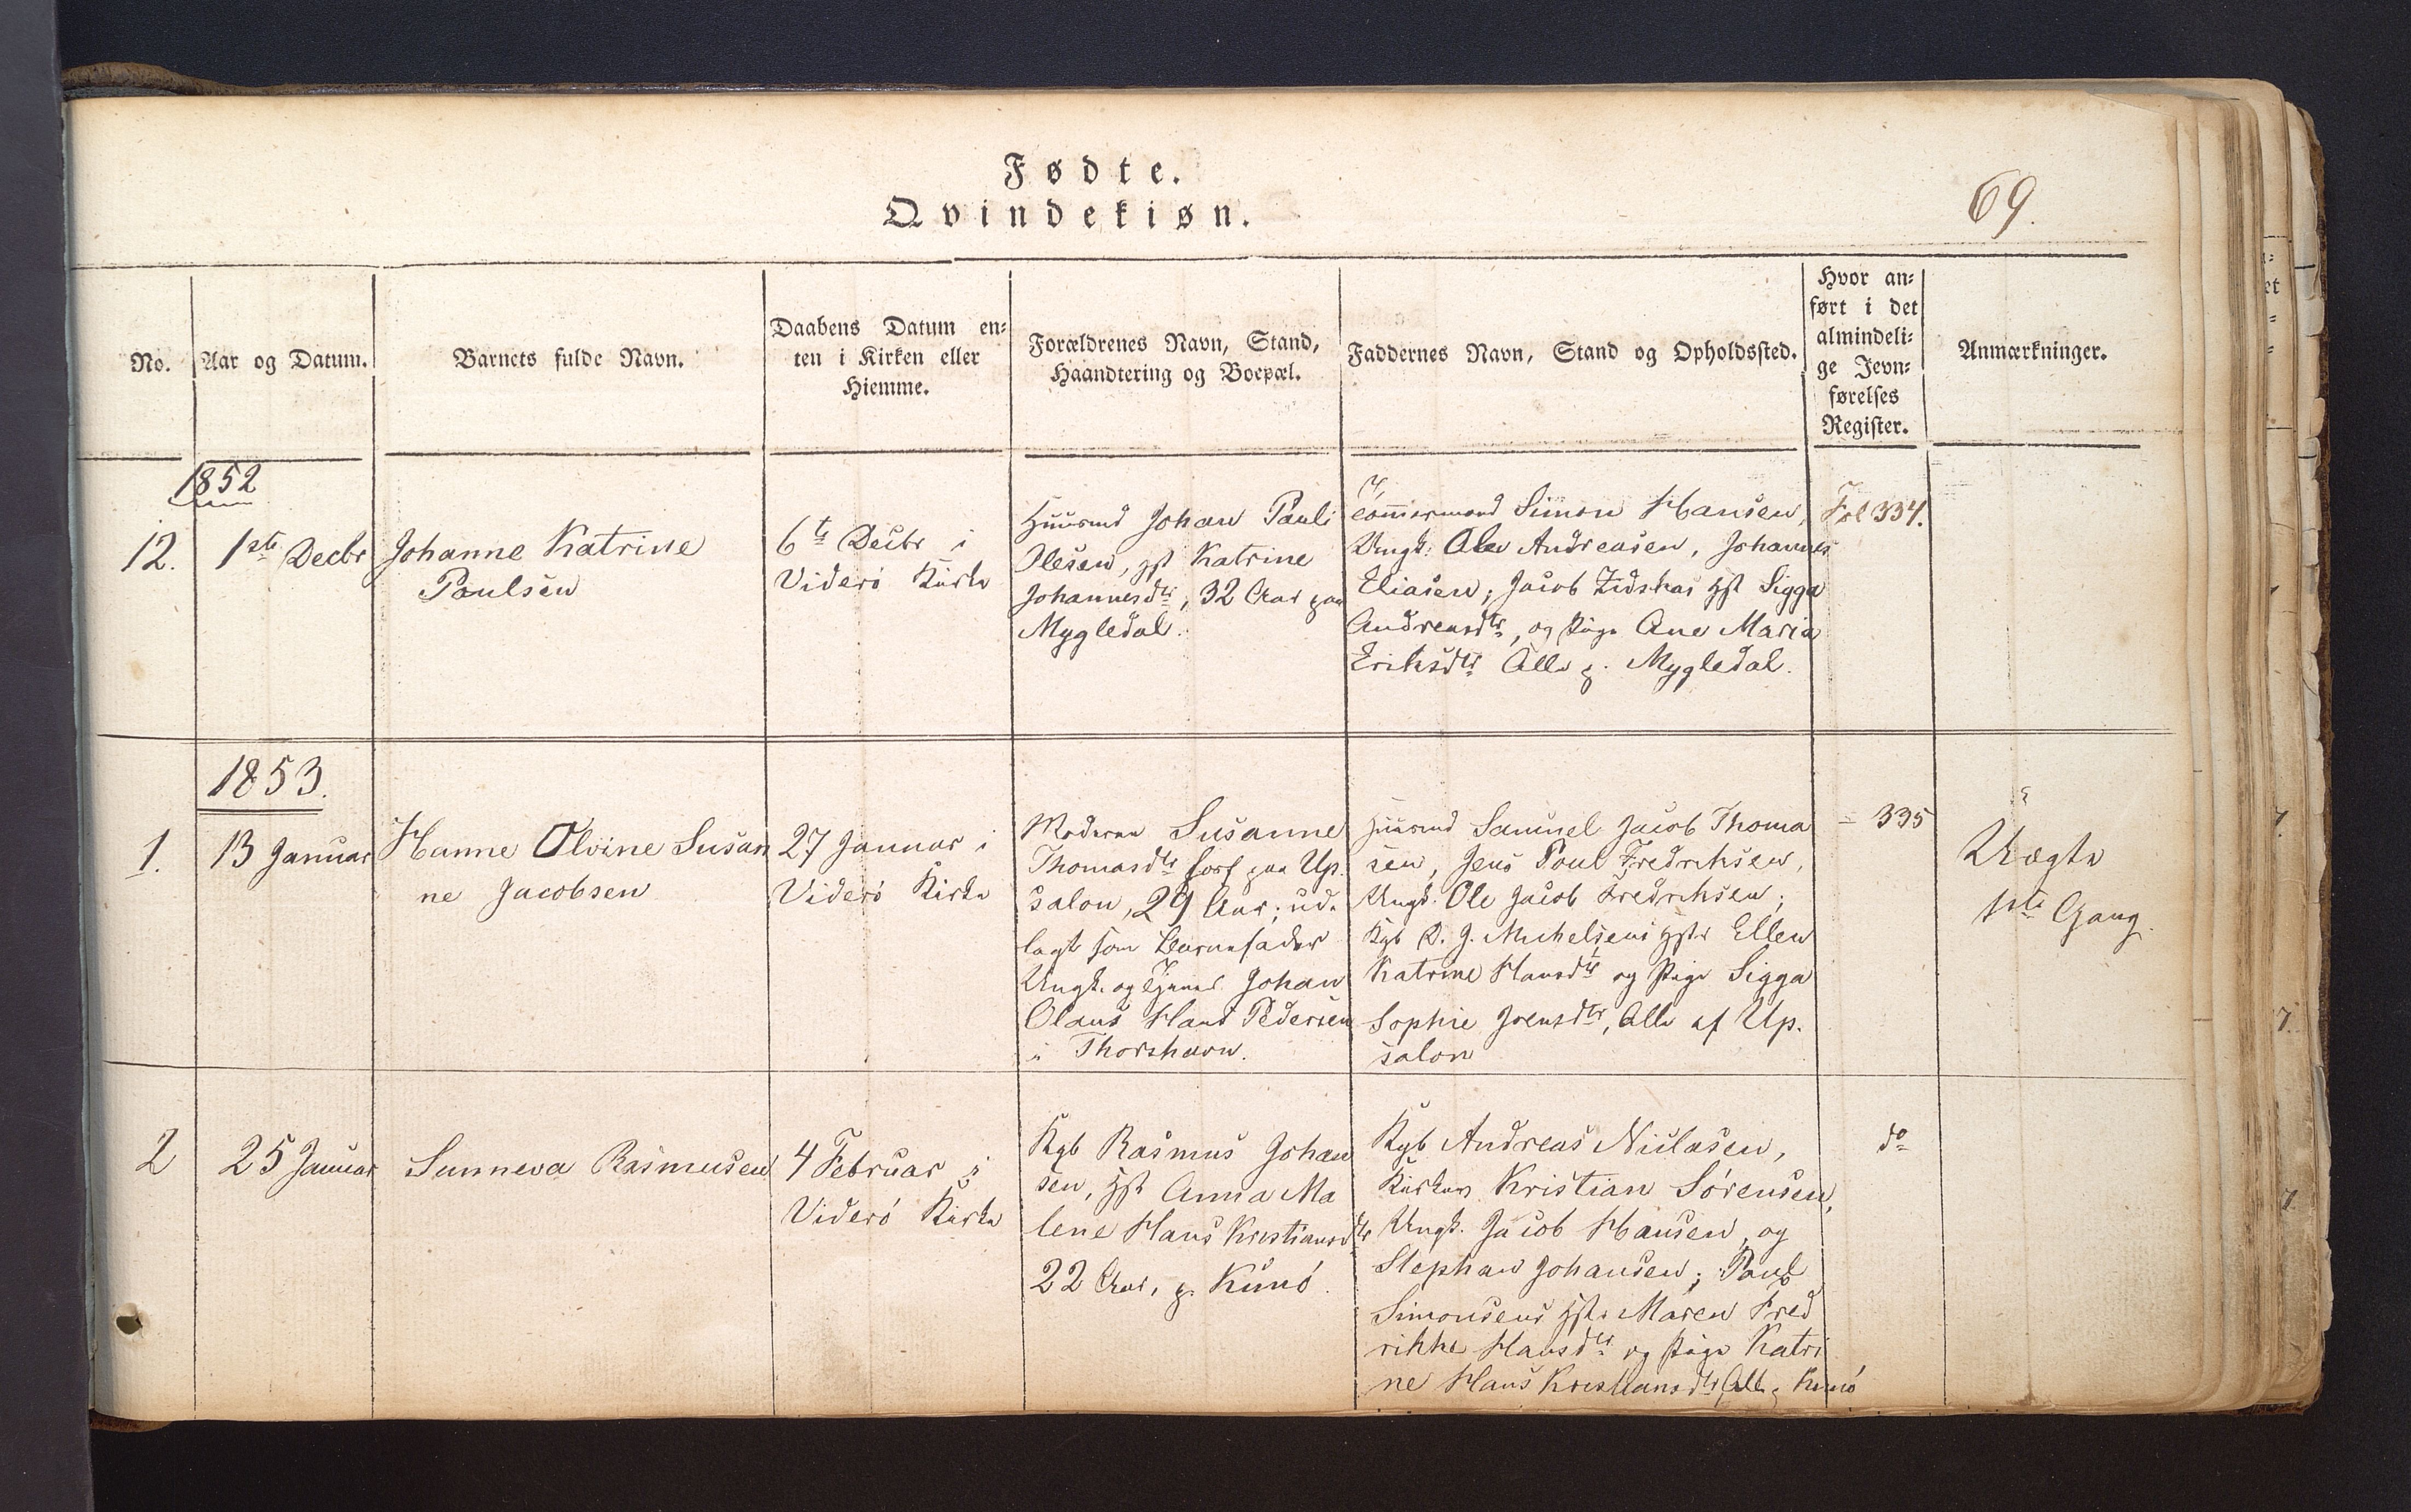 Fødte.
Qvindekiøn.
69.
No.
Aar og Datum.
Barnets fulde Navn.
Daabens Datum en-
ten i Kirken eller
Hiemme.
Forældrenes Navn, Stand,
Haandtering og Boepæl.
Faddernes Navn, Stand og Opholdssted.
Hvor an-
ført i det
almindeli-
ge Jevn-
førelses
Register.
Anmærkninger.
1852
12.
1ste Decbr
Johanne Katrine
Poulsen
6te Decbr i
Viderö Kirke
Huusmd Johan Pauli
Olesen, Hst Katrine
Johannesdtr, 32 Aar paa
Mygledal.
Tømmermand Simon Hansen,
Ungk. Ole Andreasen, Johannes
Eliasen; Jacob Hst Sigga
Andreasdtr, og Pige Ane Maria
Eriksdtr Alle p. Mygledal.
Fol 334.
1853.
1.
13 Januar
Hanne Olvine Susan
ne Jacobsen
27 Januar i
Viderö Kirke
Moderen Susanne
Thomasdtr paa Up-
salon, 29 Aar; ud-
lagt som Barnefader
Ungk. og Johan
Olaus Hans Pedersen
i Thorshavn.
Huusmd Samuel Jacob Thoma
sen, Jens Poul Fredriksen,
Ungk. Ole Jacob Fredriksen;
Kgb D. J. Michelsens Hstr Ellen
Katrine Hansdtr og Pige Sigga
Sophie Joensdtr, Alle af Up-
salon
= 335
Uægte
1ste Gang.
2
25 Januar
Sunneva Rasmusen
4 Februar i
Viderö Kirke
Kgb Rasmus Johan
sen, Hst Anna Ma
lene Hans Kristiansdtr
22 Aar, p. Kunö.
Kgb Andreas Niclasen,
Kristian Sörensen,
Ungk. Jacob Hansen, og
Stephan Johansen; Poul
Simonsens Hstr Maren Fred
rikke Hansdtr og Pige Katri
ne Hans Kristiansdtr, Alle p Kunö
do